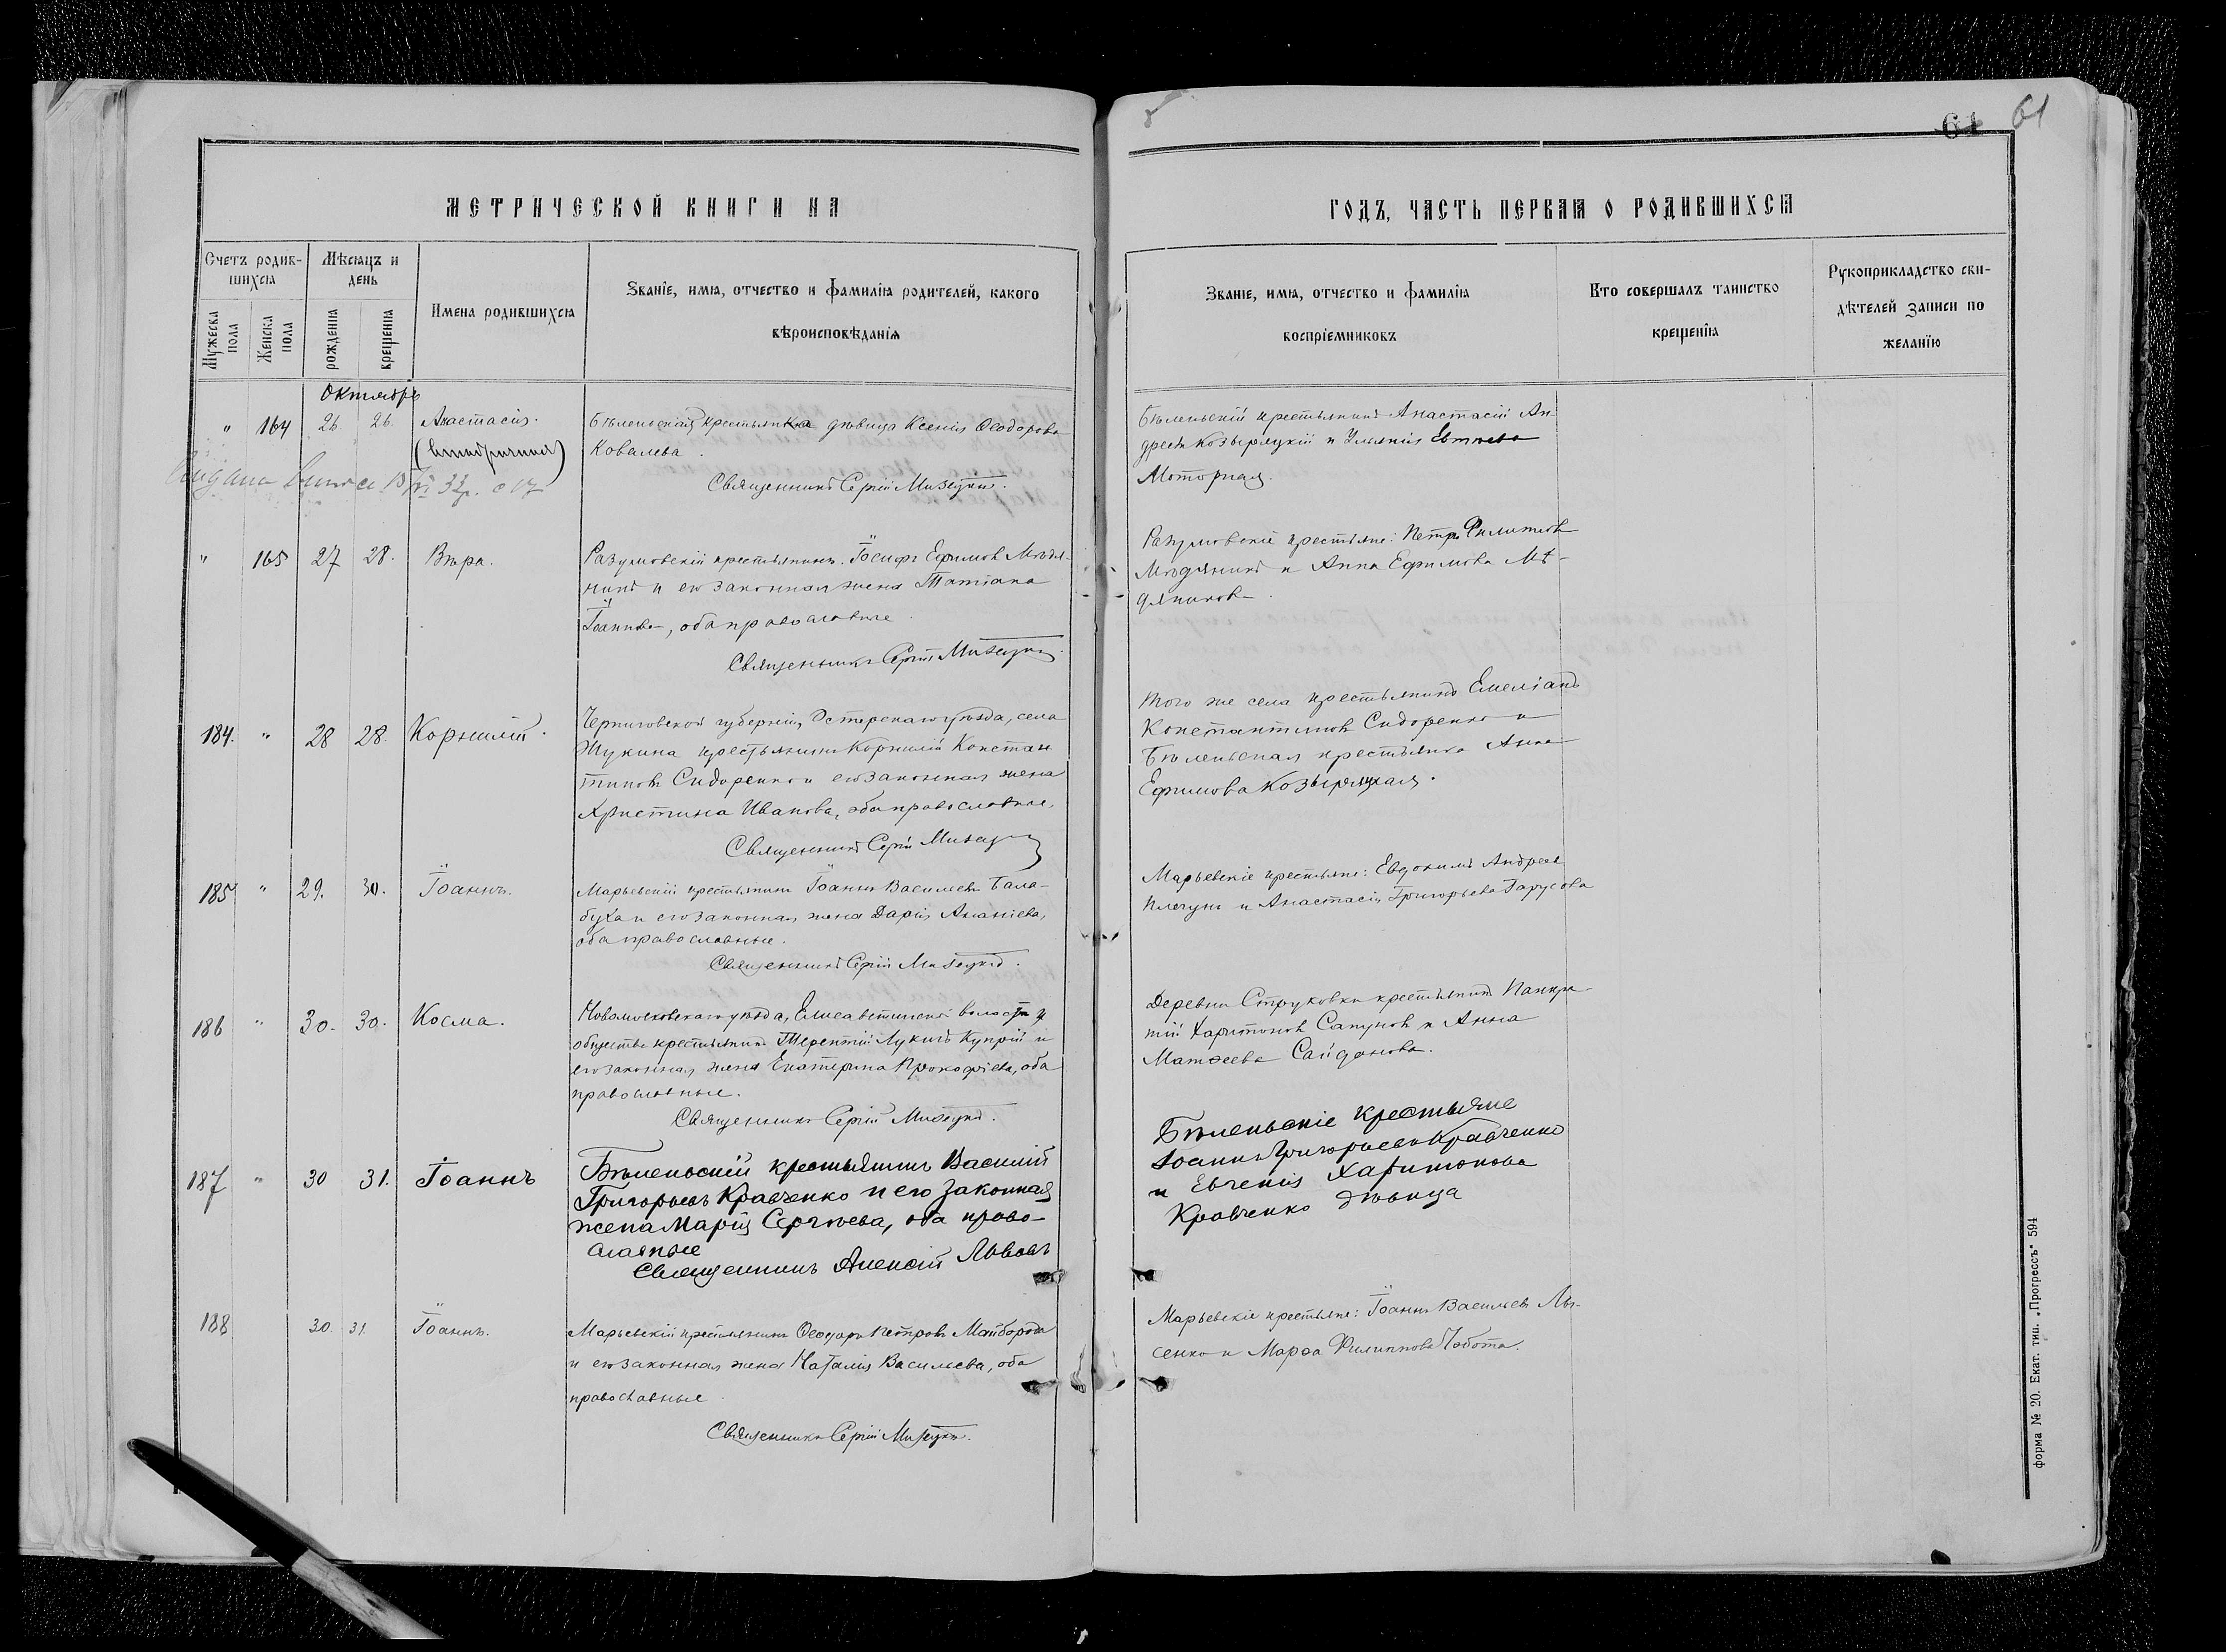 61 61
МЕТРИЧЕСКОЙ КНИГИ НА
ГОДЪ, ЧАСТЬ ПЕРВАЯ О РОДИВШИХСЯ
Счетъ родив-
шихся
Мужеска пола
Женска пола
Мѣсяцъ и
день
рожденія
крещенія
Имена родившихся
Званіе, имя, отчество и фамилія родителей, какого
вѣроисповѣданія
Званіе, имя, отчество и фамилія
воспріемниковъ
Кто совершалъ таинство
крещенія
Рукоприкладство сви-
дѣтелей записи по
желанію
Октябрь
" 164 26. 26. Анастасія.
(внѣбрачная)
Бѣленьская крестьянка дѣвица Ксенія Ѳеодорова
Ковалева.
Священникъ Сергій Мизецкій.
Бѣленьскій крестьянинъ Анастасій Ан-
дреевъ Козыряцкій и Ульянія
Моторная.
" 165 27 28. Вѣра.
Разумовскій крестьянинъ Іосифъ Ефимовъ Мѣдя-
никъ и его законная жена Татіана
Іоаннова, оба православные.
Священникъ Сергій Мизецкій.
Разумовскіе крестьяне: Петръ Филиповъ
Мѣдяникъ и Анна Ефимова Мѣ-
дяникова.
184. " 28 28. Корнилій.
Черниговской губерніи, Остерскаго уѣзда, села
Жукина крестьянинъ Корнилій Констан-
тиновъ Сидоренко и его законная жена
Христина Иванова, оба православные.
Священникъ Сергій Мизецкій
Того же села крестьянинъ Емеліанъ
Константиновъ Сидоренко и
Бѣленьская крестьянка Анна
Ефимова Козыряцкая.
185 " 29. 30. Іоаннъ.
Марьевскій крестьянинъ Іоаннъ Васильевъ Бала-
буха и его законная жена Дарія Ананіева,
оба православные.
Священникъ Сергій Мизецкій.
Марьевскіе крестьяне: Евдокимъ Андреевъ
Плечунъ и Анастасія Григорьева Гарусова
186 " 30. 30. Косма.
Новомосковскаго уѣзда, Елисаветинской волости и
общества крестьянинъ Терентій Лукичъ Купрій и
его законная жена Екатерина Прокофіева, оба
православные.
Священникъ Сергій Мизецкій.
Деревни Струковки крестьянинъ Панкра-
тій Харитоновъ Сапуновъ и Анна
Матѳеева Сайданова.
187 " 30 31. Іоаннъ
Бѣленьскій крестьянинъ Василій
Григорьевъ Кравченко и его законная
жена Марія Сергѣева, оба право-
славные
Священникъ Алексій Львовъ
Бѣленьскіе крестьяне
Іоаннъ Григорьевъ Кравченко
и Евгенія Харитонова
Кравченко дѣвица
188 30. 31. Іоаннъ.
Марьевскій крестьянинъ Ѳеодоръ Петровъ Майборода
и его законная жена Наталія Васильева, оба
православные
Священникъ Сергій Мизецкій.
Марьевскіе крестьяне: Іоаннъ Васильевъ Лы-
сенко и Марѳа Филиппова Чобота.
форма № 20. Екат. тип. „Прогрессъ“ 594